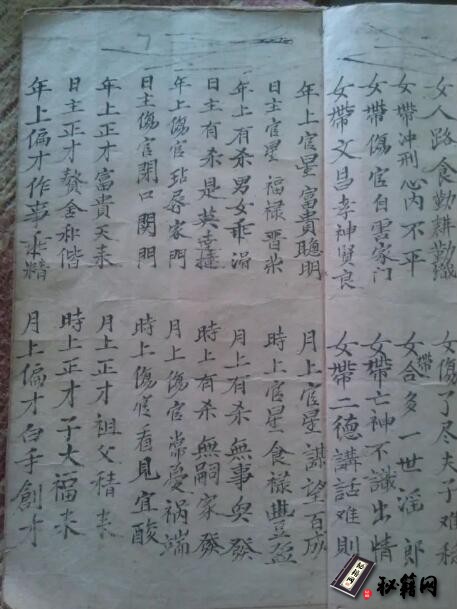 女人路食勤耕勤織
女傷了尽夫子难
女帶冲刑心内不平
女合帶多一世滛郎
女帶傷官自害家门
女帶亡神不識出情
女帶文昌孝神賢良
女帶二德講話难則
年上官星富貴聰明
月上官星謀望百成
日主官星福禄晋
時上官星食禄豊盈
年上有杀男女乖
月上有杀無事
日主有杀是英
時上有杀無嗣家發
年上傷官 尋家門
月上傷官常憂祸端
日主傷官開口関門
時上傷官看見宜酸
年上正才富貴天来
月上正才祖父積来
日主正才 舍和偕
時上正才子大福来
年上偏才作事 精
月上偏才白手創才
秘籍网
秘籍网